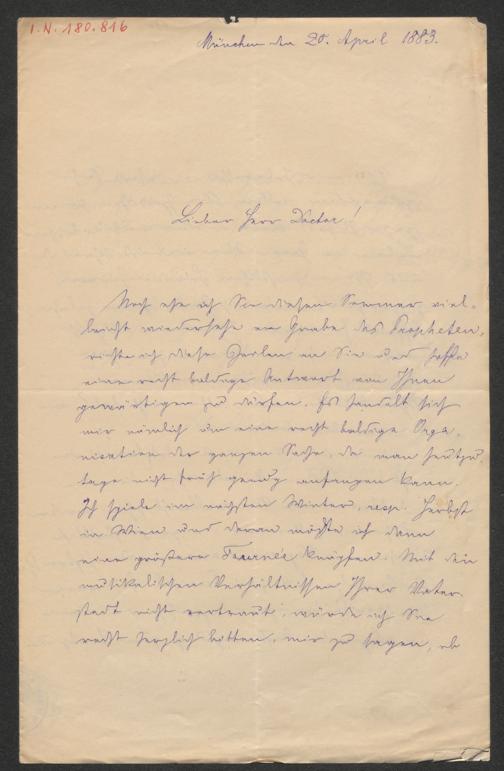 I.N. 180.816
München den 20. April 1883.
Lieber Herr Doctor!
Noch ehe ich Sie diesen Sommer viel-
leicht wiedersehe am Grabe des Propheten,
richte ich diese Zeilen an Sie und hoffe
eine recht baldige Antwort von Ihnen
gewärtigen zu dürfen. Es handelt sich
mir nämlich um eine recht baldige Orga-
nisation der ganzen Sache, da man heutzu-
tage nicht früh genug anfangen kann.
Ich spiele im nächsten Winter, resp. Herbst
in Wien und daran möchte ich dann
eine größere Tournée knüpfen. Mit den
musikalischen Verhältnissen Ihrer Vater-
stadt nicht vertraut, würde ich Sie
recht herzlich bitten, mir zu sagen, ob